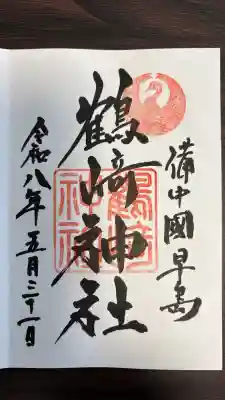 備中國早島
鶴﨑神社
鶴﨑神社
令和八年五月三十一日